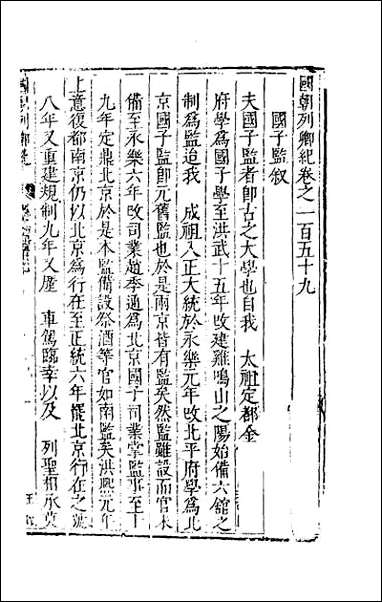 國朝列卿紀卷之一百五十九
國子監叙
夫國子監者卽古之大學也自我　太祖定都金
府學爲國子學至洪武十五年改建雞鳴山之陽始備六舘之
制爲監迨我　成祖入正大統於永樂元年改北平府學爲北
京國子監卽元舊監也於是兩京皆有監矣然監雖設而官未
備至永樂六年改司業趙季通爲北京國子司業掌監事至十
九年定鼎北京於是本監備設祭酒等官如南監矣洪熙元年
上意復都南京仍以北京爲行在至正統六年罷北京行在之
八年又重建規制九年又塵　車駕臨幸以及　列聖相承莫
國朝列卿紀